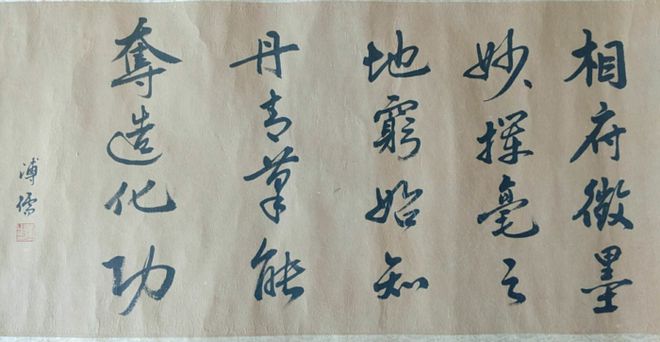 相府徵墨
妙揮毫天
地窮始知
丹青筆能
奪造化功
溥儒